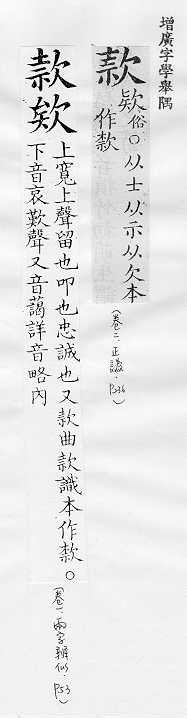 增廣字學舉隅
款
欵俗○从士从示从欠本
作欵
(卷二.正譌.P36)
款欸
上寬上聲留也叩也忠誠也又款曲款識本作欵。
下音哀歎聲又音藹詳音略內
(卷一.兩字辨似.P53)